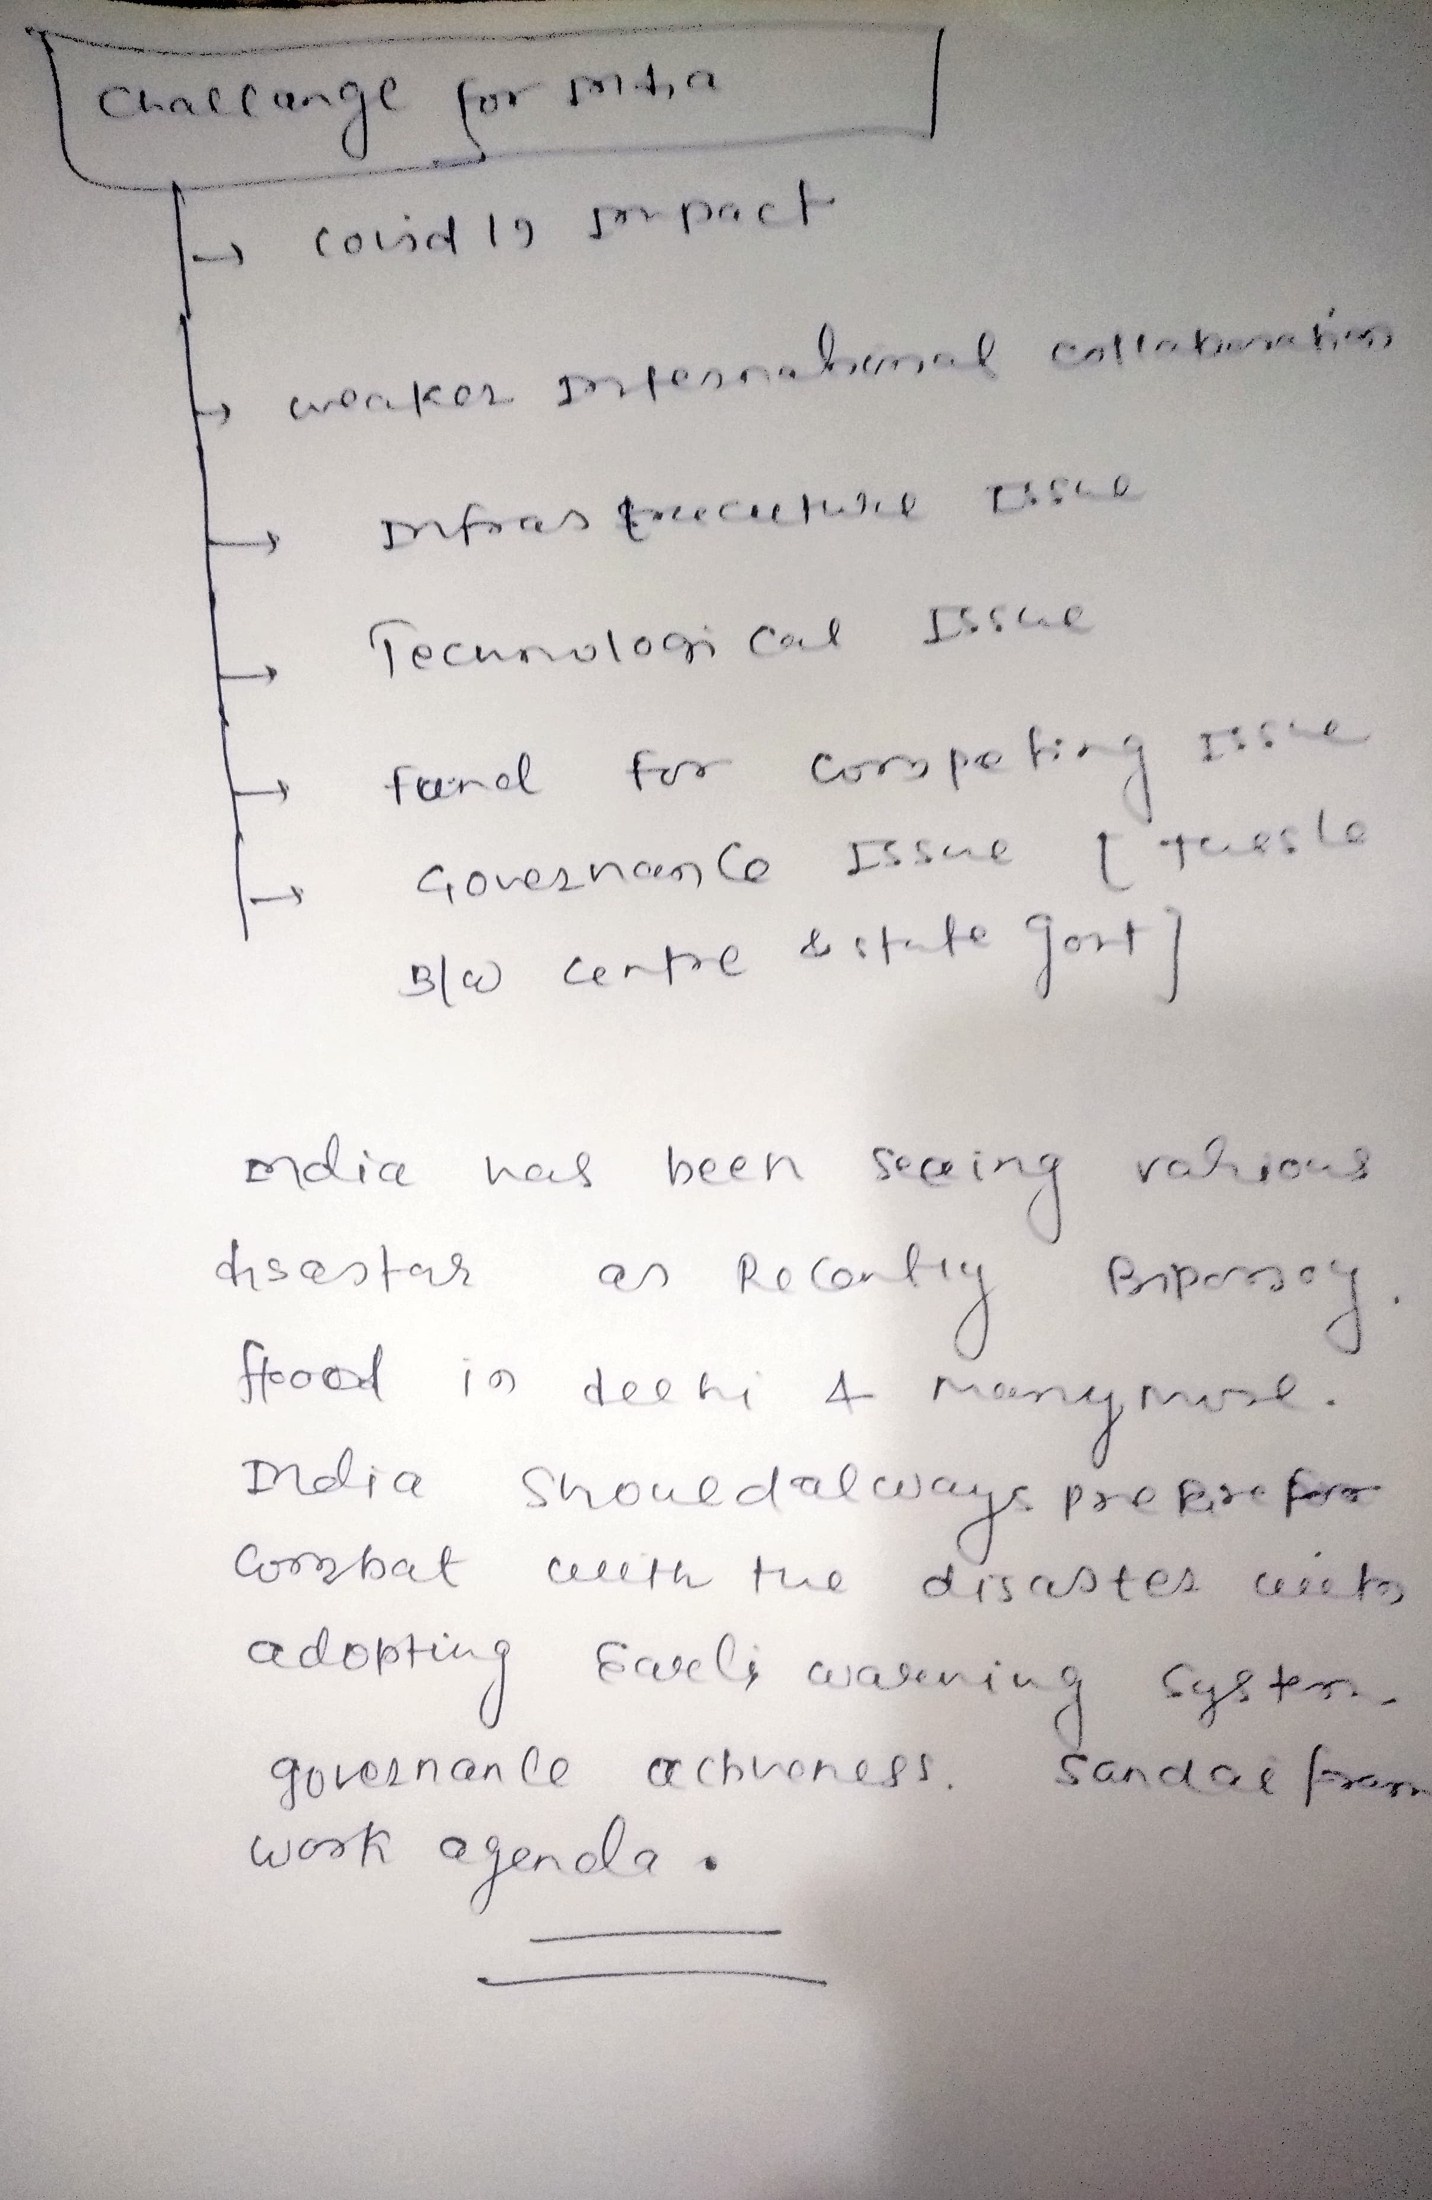 Challange for India
→ Covid 19 Impact
→ weaker International collaboration
→ Infrastructure Issue
→ Technological Issue
→ fund for competing Issue
→ Governance Issue [tussle
B/w centre & state govt]
India has been seeing various
disastar as Recently Biparjoy.
flood in delhi & many more.
India should always prepare for
combat with the disaster with
adopting Earli warning system,
governance activeness. Sandai fram
work agenda.